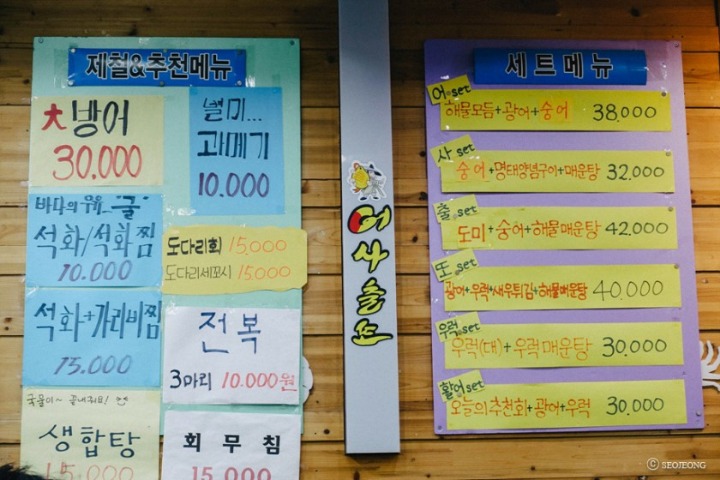 제철&추천메뉴
大방어
30.000
별미...
과메기
10.000
바다의 우유 굴
석화/석화찜
10.000
도다리회 15,000
도다리세꼬시 15,000
석화+가리비찜
15.000
전복
3마리 10.000원
국물이~ 끝내줘요!
생합탕
15.000
회무침
15.000
어사출또
세트메뉴
어.set
해물모듬+광어+숭어 38.000
사.set
숭어+명태양념구이+매운탕 32.000
출.set
도미+숭어+해물매운탕 42.000
또.set
광어+우럭+새우튀김+해물매운탕 40.000
우럭.set
우럭(대)+우럭매운탕 30.000
활어set
오늘의추천회+광어+우럭 30.000
ⓒ SEOJEONG